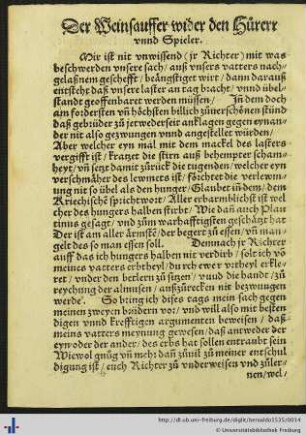 Der Weinsauffer wider den Hůrerr
vnnd Spieler.
Mir ist nit vnwissend (jr Richter) mit was
beschwerden vnsere sach / auß vnsers vatters nach-
gelaßnem gescheffte / beängstiget wirt / dann darauß
entsteht daß vnsere laster an tag bracht / vnnd übel-
standt geoffenbaret werden müssen / In dem doch
am fordersten vn̄ höchsten billich zůuerschonen stünd
daß gebrüder zů jetwederseit anklagen gegen eynan-
der nit also gezwungen vnnd angestellet würden /
Aber welcher eyn mal mit dem mackel des lasters
vergifft ist / kratzet die stirn auß behempter scham-
heyt / vn̄ setzt damit zůruck die tugenden / welcher eyn
verschmäher des lewmets ist / förchtet die verlewm-
ung nit so übel als den hunger / Glaubet in dem / dem
Kriechischē sprichwort / Aller erbarmblichst ist wel
cher des hungers halben stirbt / Wie dan̄ auch Plau
tinus gesagt / vnd zum warhafftigsten geschätzt hat
Der ist am aller ärmste / der begert zů essen / vn̄ man-
gelt des so man essen soll. Demnach jr Richter
auff das ich hungers halben nit verdirb / solt ich vō
meines vatters erbtheyl durch ewer vrtheyl erkle-
ret / vnder den betlern zů sitzen / vnnd die handt / zů
reychung der almusen / außzůrecken nit bezwungen
werde. So bring ich dises tags mein sach gegen
meinen zweyen brüdern vor / vnd will also mit besten
digen vnnd krefftigen argumenten beweisen / daß
meins vatters meynung gewesen / daß antweder der
eyn oder der ander / des erbs hat sollen entraubt sein
Wiewol gnůg vn̄ meh dan̄ zůuil zů meiner entschul
digung ist / euch Richter zů vnderweisen vnd zůler-
nen / wel-
http://dl.ub.uni-freiburg.de/diglit/beroaldo1535/0014
© Universitätsbibliothek Freiburg